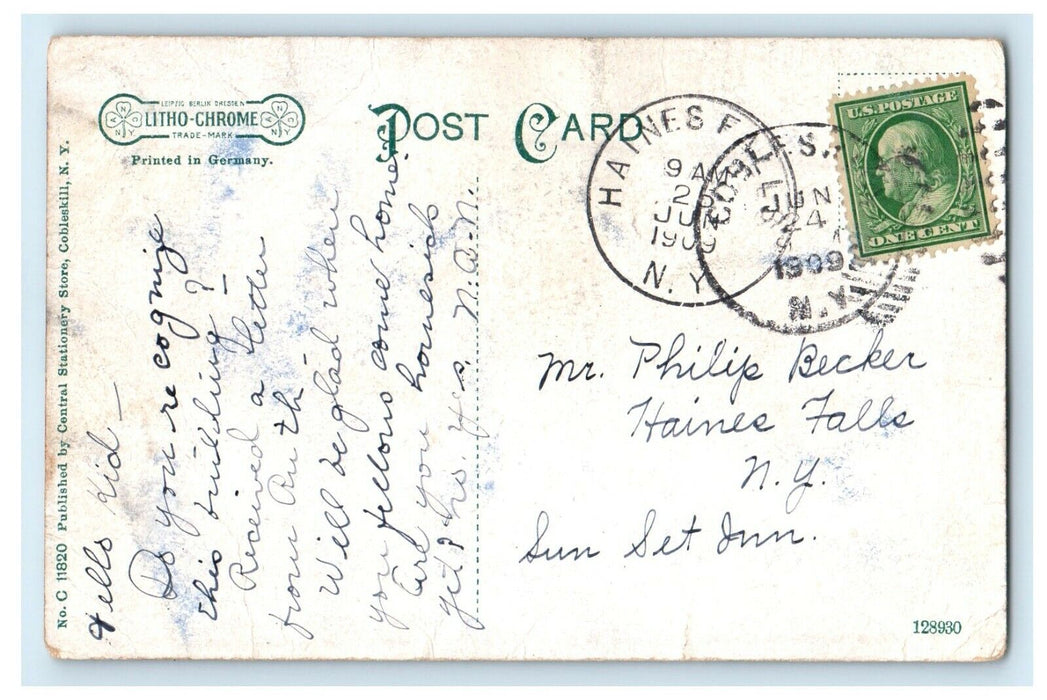 LEIPZIG BERLIN DRESDEN
LITHO-CHROME
TRADE-MARK
Printed in Germany.
POST CARD
No. C 11820 Published by Central Stationery Store, Cobleskill, N. Y.
Hello Kid —
Do you recognize
this building? —
Received a letter
from Ruth —
Will be glad when
you fellows come home.
Are you homesick
yet?
HAINES F
9 AM
25
JUN
1909
N.Y.
COBLES
JUN
24
1909
N.Y.
U.S. POSTAGE
ONE CENT
Mr. Philip Becker
Haines Falls
N.Y.
Sun Set Inn.
128930